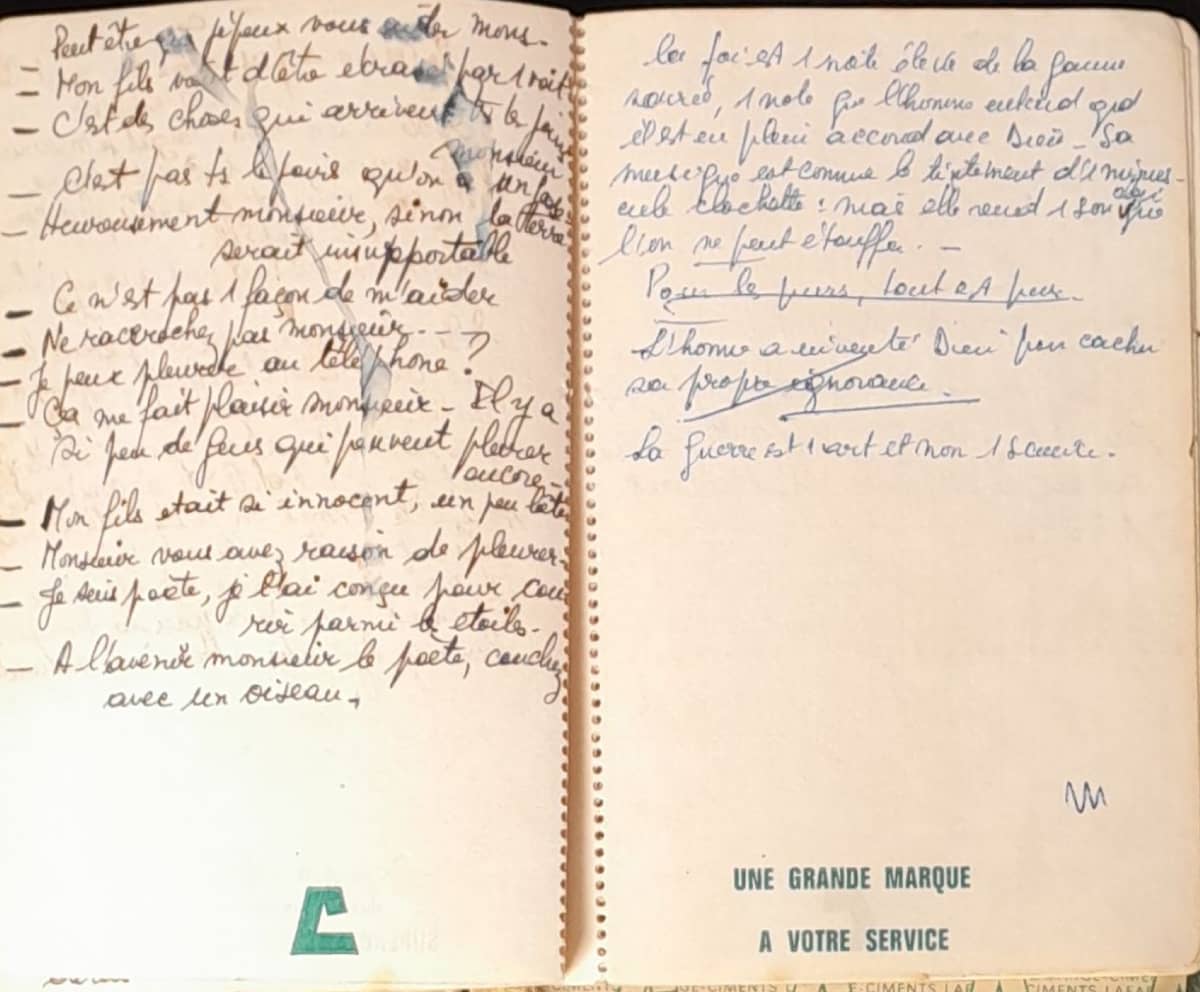 Peut être que je peux vous aider mons-
– Mon fils vient d'être ecrasé par 1 voit
– C'est des choses qui arrivent ts les jours
monsieur
– C'est pas ts les jours qu'on a un fils
– Heureusement monsieur, sinon la terre
serait insupportable
– Ce n'est pas 1 façon de m'aider
– Ne raccrochez pas monsieur. - - -
– Je peux pleurer au téléphone ?
– Ca me fait plaisir monsieur - Il y a
si peu de gens qui peuvent pleurer
encore -
– Mon fils etait si innocent, un peu bête
– Monsieur vous avez raison de pleurer -
– Je suis poète, je l'ai conçu pour cou
rir parmi les etoiles.
– A l'avenir monsieur le poète, couchez
avec un oiseau.
la foi est 1 note élevée de la gamme
sacrée, 1 note que l'homme entend qd
il est en plein accord avec Dieu - Sa
musique est comme le tintement d'1 minus-
cule clochette : mais elle rend 1 son que
l'on ne peut étouffer. -
Pour les purs, tout est pur.
L'homme a inventé Dieu pour cacher
sa propre ignorance.
La guerre est 1 art et non 1 science.
UNE GRANDE MARQUE
A VOTRE SERVICE